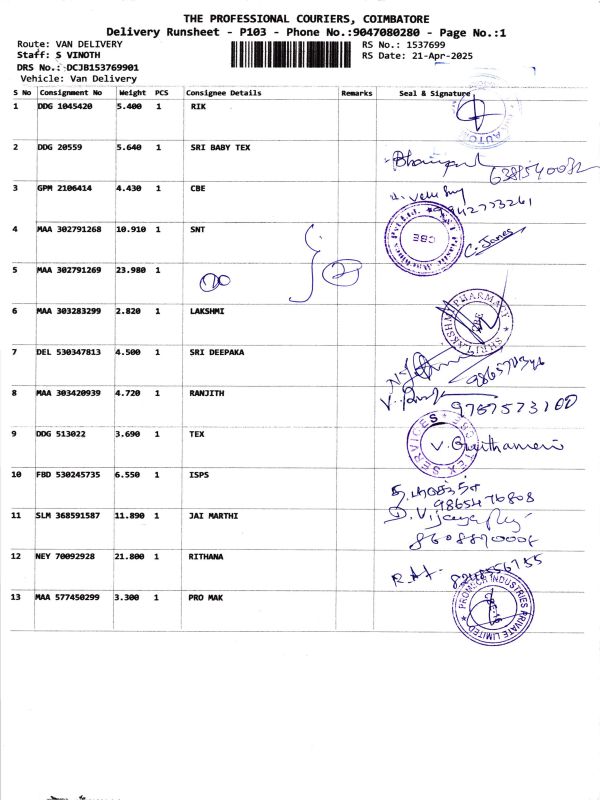 THE PROFESSIONAL COURIERS, COIMBATORE
Delivery Runsheet - P103 - Phone No.:9047080280 - Page No.:1
Route: VAN DELIVERY RS No.: 1537699
Staff: S VINOTH RS Date: 21-Apr-2025
DRS No.: DCJB153769901
Vehicle: Van Delivery
S No Consignment No Weight PCS Consignee Details Remarks Seal & Signature
1 DDG 1045420 5.400 1 RIK
AUTO
2 DDG 20559 5.640 1 SRI BABY TEX
3 GPM 2106414 4.430 1 CBE
9942773261
4 MAA 302791268 10.910 1 SNT
CBE
C. Janes
5 MAA 302791269 23.980 1
2
6 MAA 303283299 2.820 1 LAKSHMI
SHRI LAKSHMI PHARMACY
CBE
7 DEL 530347813 4.500 1 SRI DEEPAKA
8 MAA 303420939 4.720 1 RANJITH
9787573100
9 DDG 513022 3.690 1 TEX
TEX SERVICES CBE
10 FBD 530245735 6.550 1 ISPS
9865476808
11 SLM 368591587 11.890 1 JAI MARTHI
D. Vijaya
12 NEY 70092928 21.800 1 RITHANA
13 MAA 577450299 3.300 1 PRO MAK
INDUSTRIES PRIVATE LIMITED